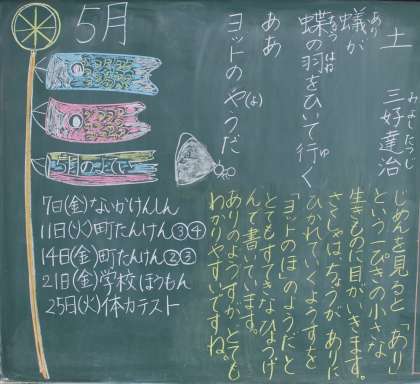 土
三好達治
みよしたつじ
蟻が
あり
蝶の羽をひいて行く
ちょう はね ゆ
ああ
ヨットのやうだ
(よ)
じめんを見ると「あり」
という一ぴきの小さな
生きものに目がいきます。
さくしゃは、ちょうが ありに
ひかれていくようすを
「ヨットのほ」のようだと
とてもすてきなひょうげ
んで書いています。
ありのようすが、とても
わかりやすいですね。
5月
5月のよてい
7日(金)ないかけんしん
11日(火)町たんけん③④
14日(金)町たんけん②③
21日(金)学校ほうもん
25日(火)体力テスト